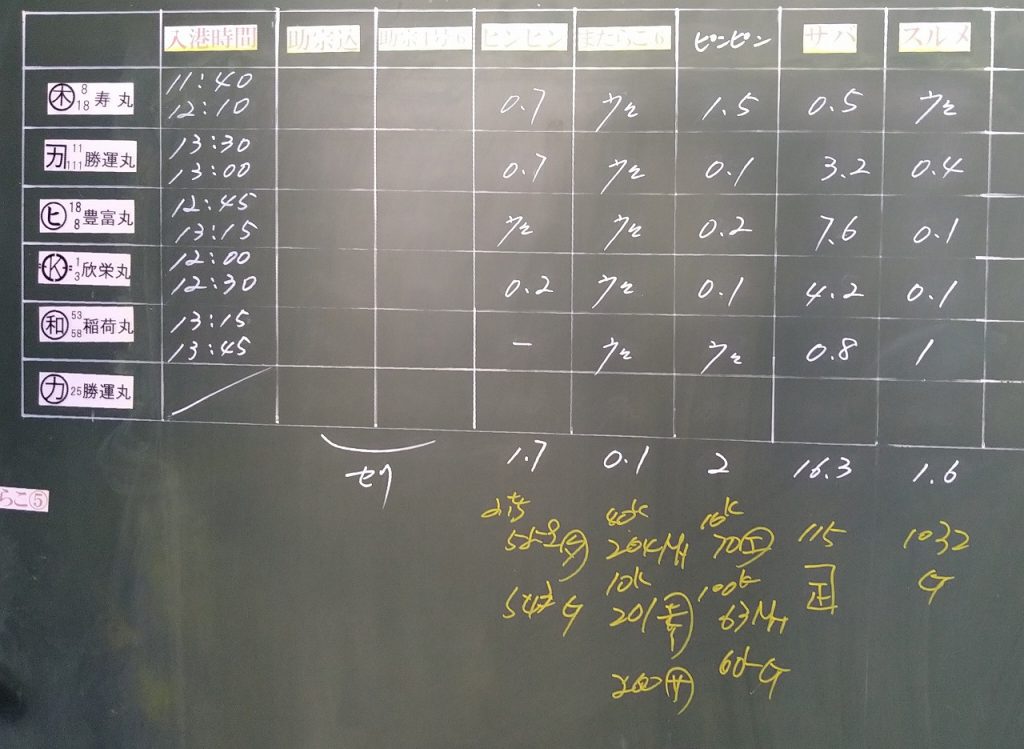 入港時間 助宗込 ピンピン またらこ6 ピンピン サバ スルメ
木 8 18 寿丸 11:40 12:10 0.7 ウロ 1.5 0.5 ウロ
カ 11 111 勝運丸 13:30 13:00 0.7 ウロ 0.1 3.2 0.4
ヒ 18 8 豊富丸 12:45 13:15 ウロ ウロ 0.2 7.6 0.1
K 1 3 欣栄丸 12:00 12:30 0.2 ウロ 0.1 4.2 0.1
和 53 58 稲荷丸 13:15 13:45 - ウロ ウロ 0.8 1
カ 25 勝運丸
セリ 1.7 0.1 2 16.3 1.6
らこ⑤
80K 10K
115 1032
10K 100K
正 G
201 63
200 サ G